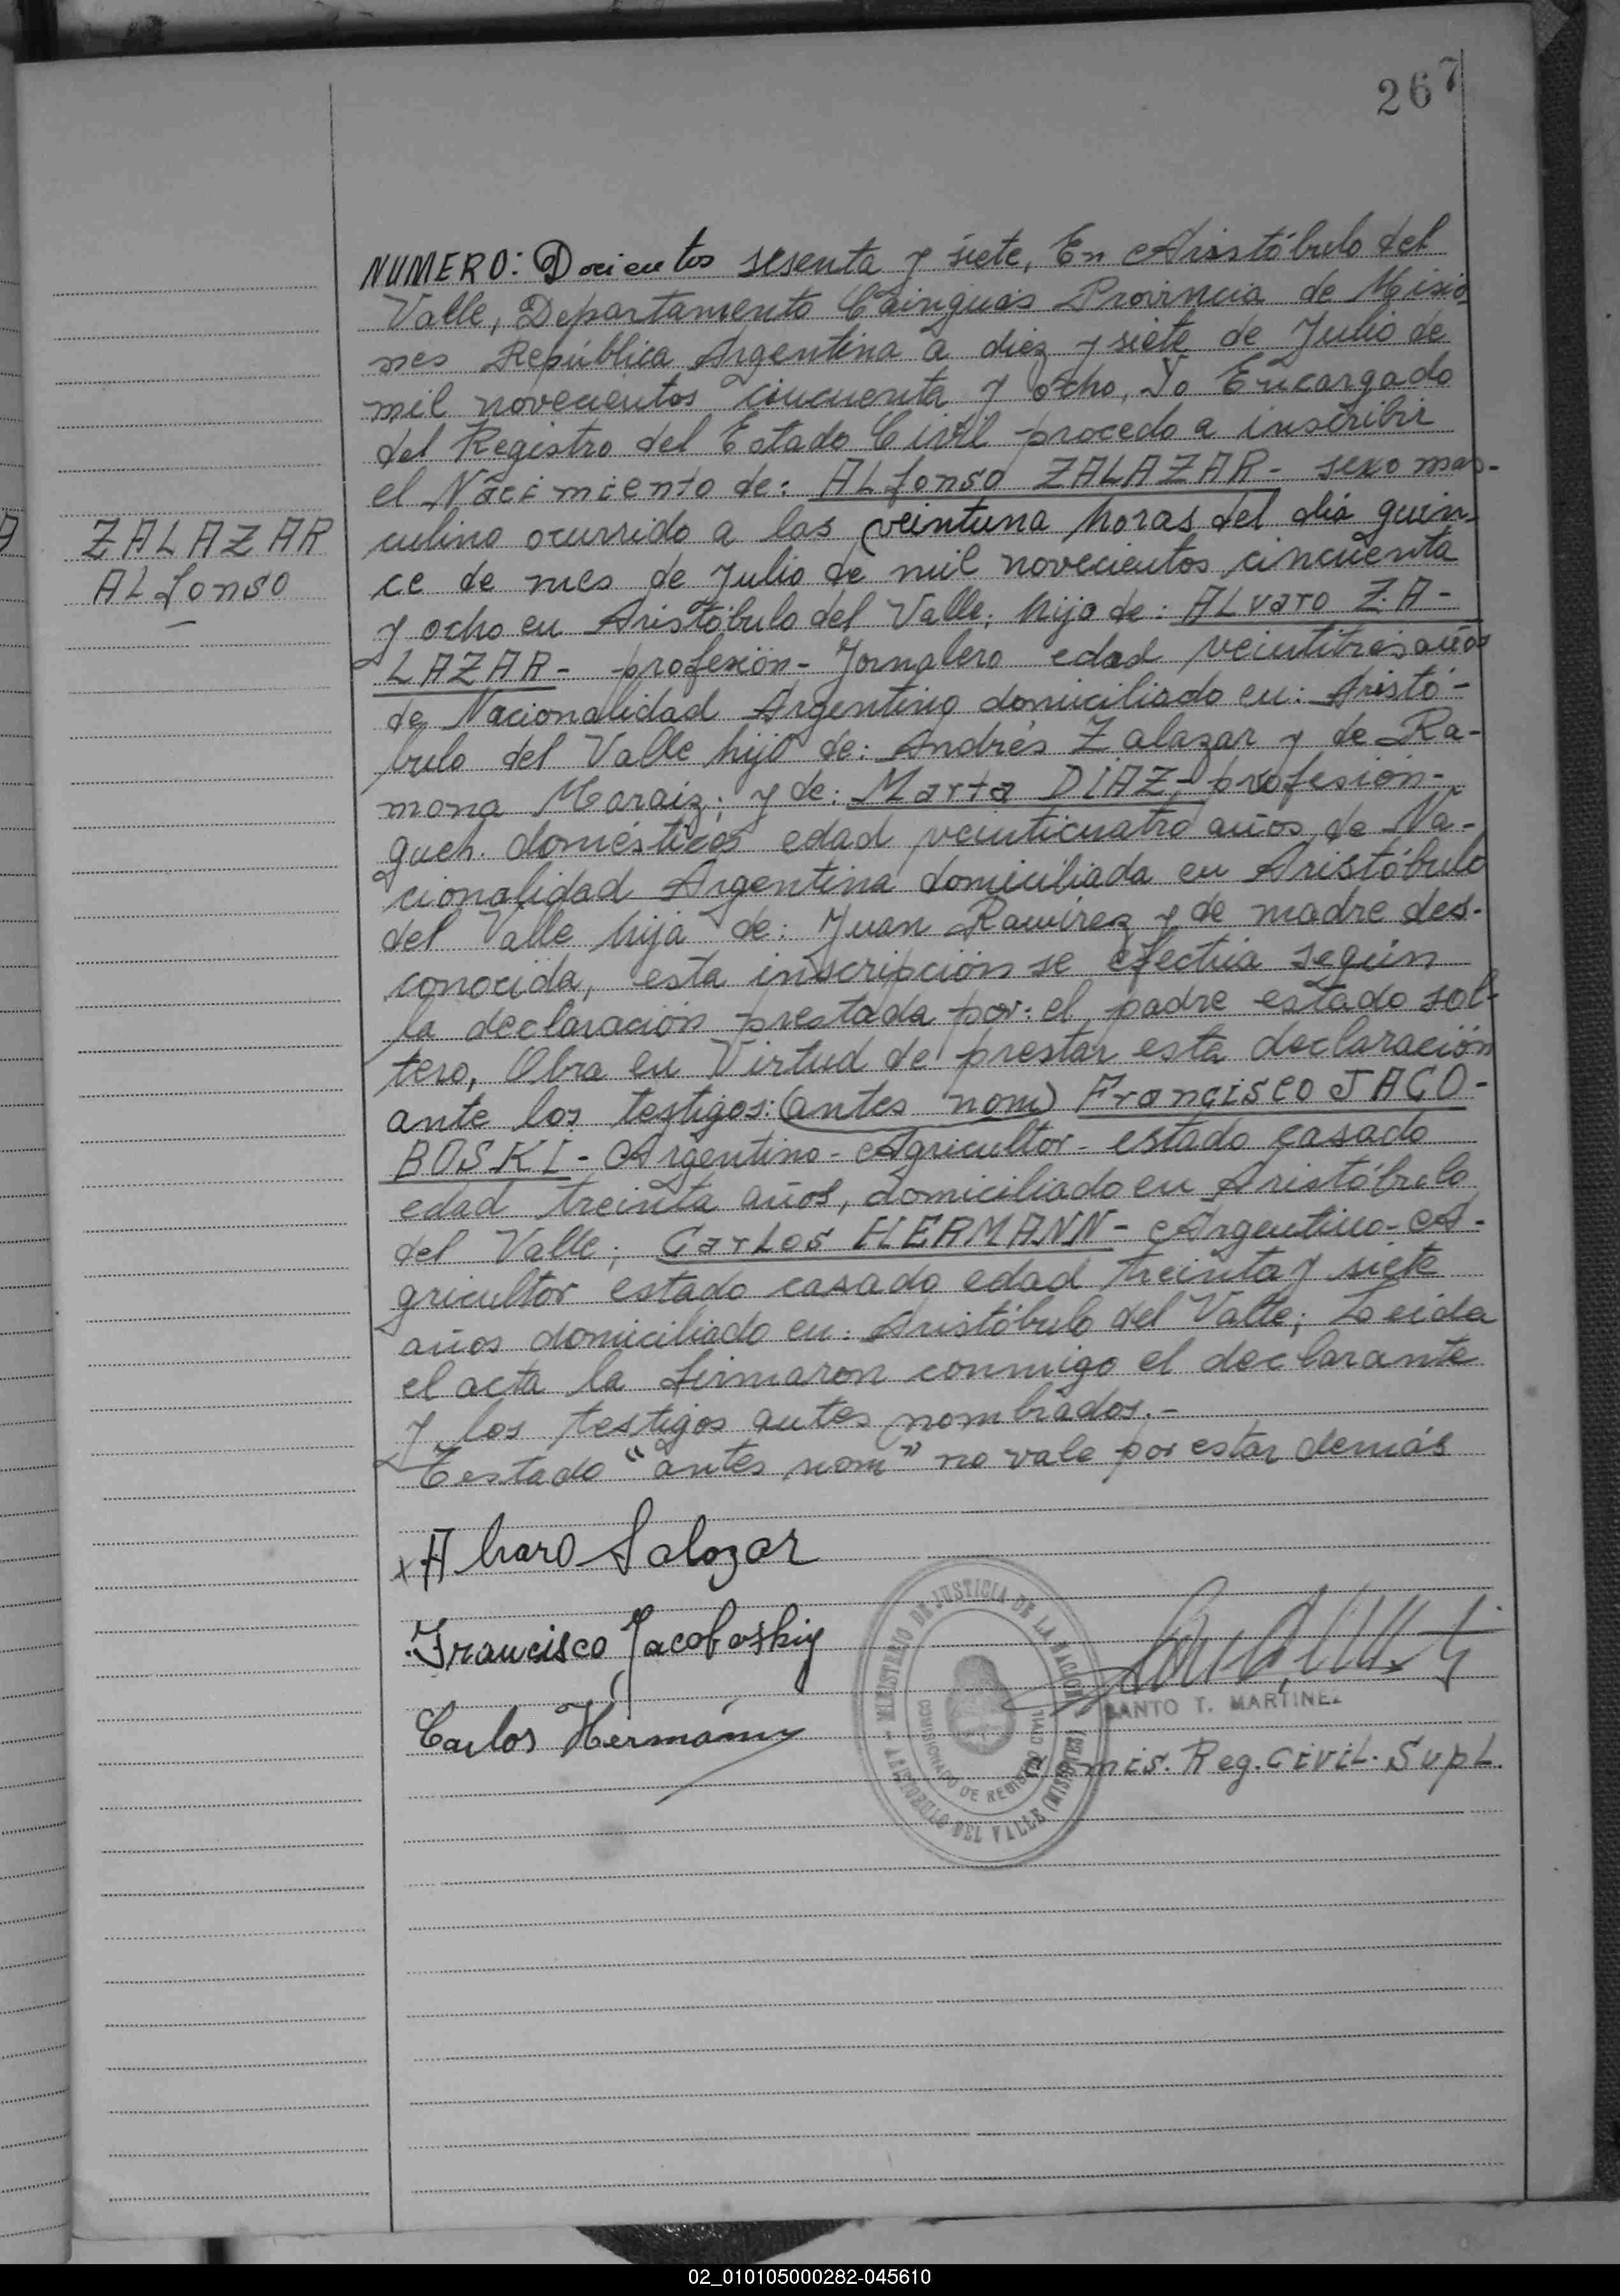 267
NUMERO: Docientos sesenta y siete, En Aristóbulo del
Valle, Departamento Cainguás Provincia de Misio
nes República Argentina a diez y siete de Julio de
mil novecientos cincuenta y ocho, Yo Encargado
del Registro del Estado Civil procedo a inscribir
el Nacimiento de: ALfonso ZALAZAR- sexo mas-
culino ocurrido a las veintuna horas del día quin-
ce de mes de Julio de mil novecientos cincuenta
y ocho en Aristóbulo del Valle; hijo de: ALvaro ZA-
LAZAR- profesión- Jornalero edad veintitres años
de Nacionalidad Argentino domiciliado en: Aristó-
bulo del Valle hijo de: Andrés Zalazar y de Ra-
mona Maraiz; y de: Marta DIAZ- profesión-
queh. domésticos edad veinticuatro años de Na-
cionalidad Argentina domiciliada en Aristóbulo
del Valle hija de: Juan Ramirez y de madre des-
conocida, esta inscripción se efectúa según
la declaración prestada por: el padre estado sol-
tero, Obra en Virtud de prestar esta declaración
ante los testigos: (antes nom) Francisco JACO-
BOSKI- Argentino- Agricultor- estado casado
edad treinta años, domiciliado en Aristóbulo
del Valle; CarLos HERMANN- Argentino- A-
gricultor estado casado edad treinta y siete
años domiciliado en: Aristóbulo del Valle; Leida
el acta la firmaron conmigo el declarante
y los testigos antes nombrados.-
Testado "antes nom" no vale por estar demás
ZALAZAR
ALfonso
x Alvaro Salazar
Francisco Jacoboskiy
Carlos Hermann
MINISTERIO DE JUSTICIA DE LA NACION
COMISIONADO DE REGISTRO CIVIL
ARISTOBULO DEL VALLE (MISIONES)
SANTO T. MARTINEZ
Comis. Reg. CiviL. SupL.
02_010105000282-045610